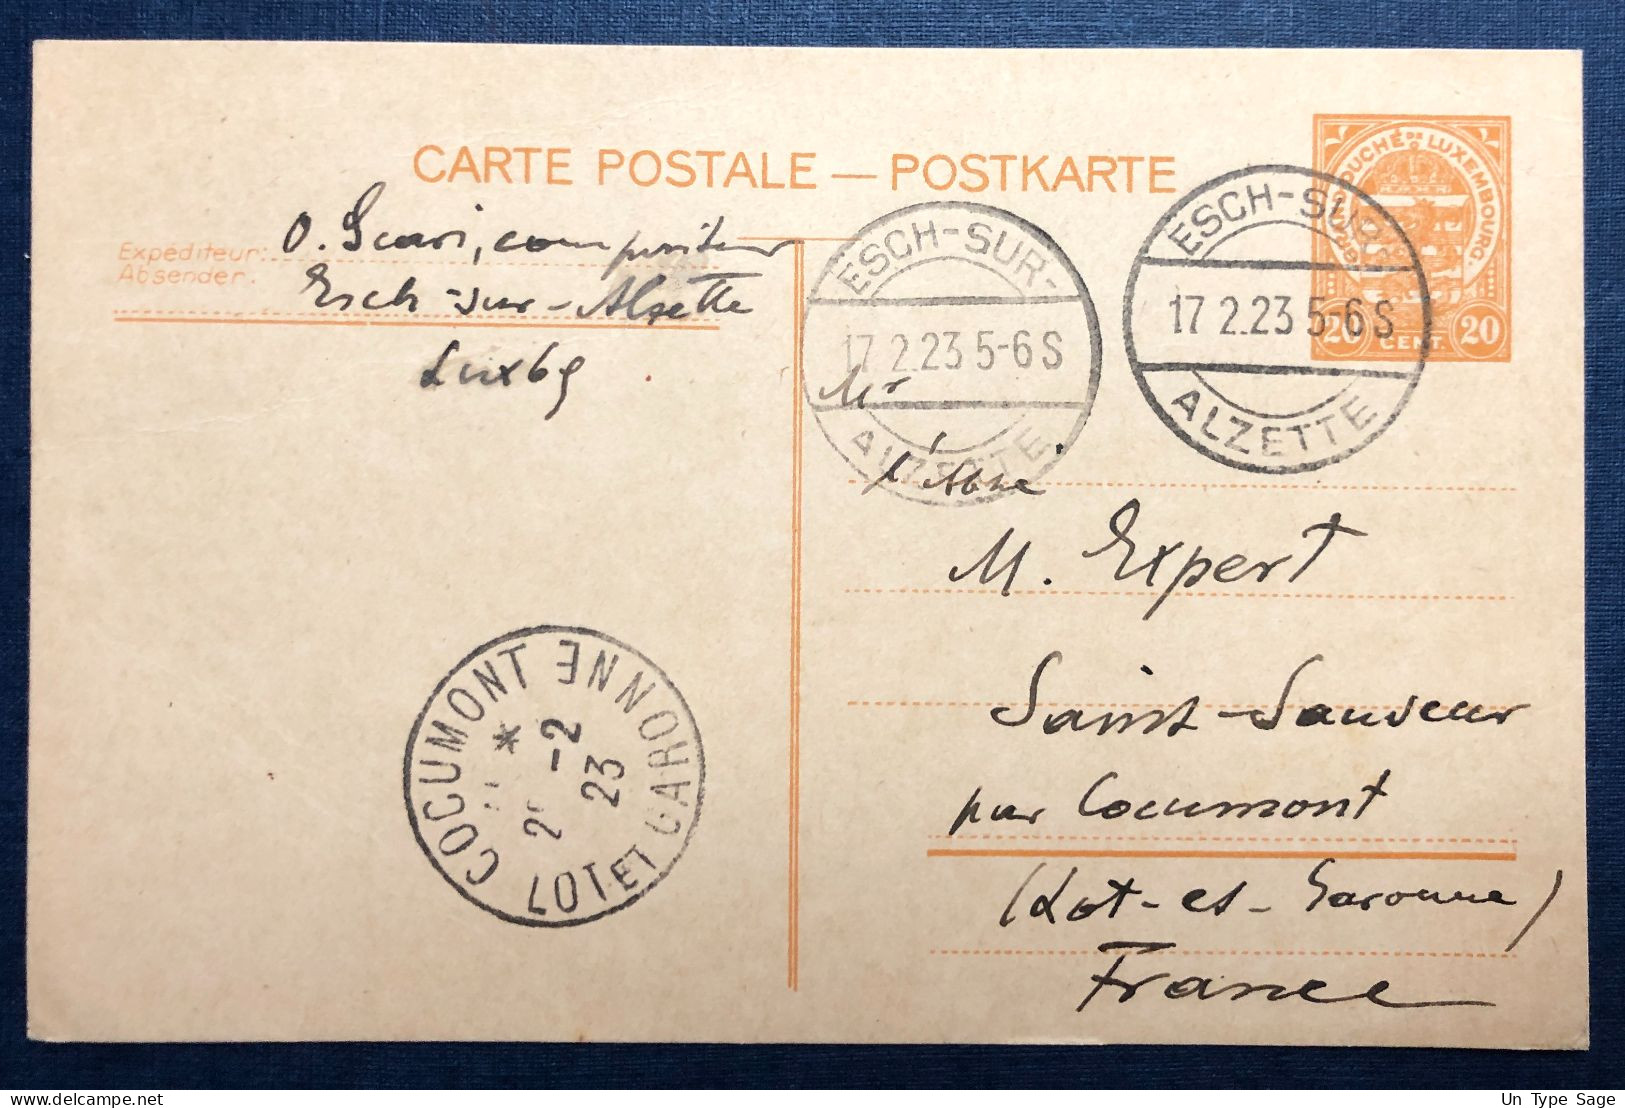 CARTE POSTALE — POSTKARTE
Expéditeur:
Absender:
O. Scari, compositeur
Esch-sur-Alzette
Luxbg
GRAND DUCHÉ DE LUXEMBOURG.
20 CENT. 20
ESCH-SUR-
17 2.23 5-6 S
ALZETTE
ESCH-SUR-
17 2.23 5-6 S
ALZETTE
Mr
l'Abbé
M. Expert
Saint-Sauveur
par Cocumont
(Lot-et-Garonne)
France
COCUMONT
*
-2
23
LOT ET GARONNE
Un Type Sage